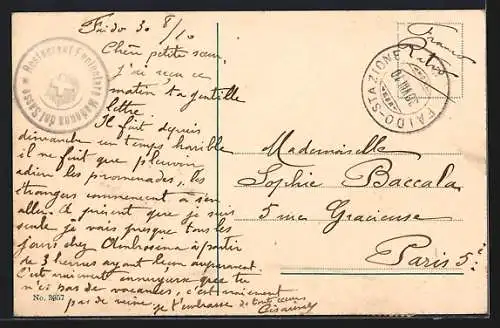 Faido 30 8/10
Chère petite sœur,
j'ai reçu ce
matin ta gentille
lettre.
Il fait depuis
dimanche un temps horrible
il ne fait que pleuvoir
adieu les promenades, les
étrangers commencent à s'en
aller. A présent que je suis
seule je vais presque tous les
jours chez Ambrosina à partir
de 3 heures ayant leçon auparavant.
C'est vraiment ennuyeux que tu
n'ai pas de vacances, c'est vraiment
pas de veine, je t'embrasse de tout cœur
No. 3957
Restaurant Funiculaire Madonna del Sasso
Franco
Retro
FAIDO-STAZIONE
30 VIII 10
Mademoiselle
Sophie Baccala
5 rue Gracieuse
Paris 5e